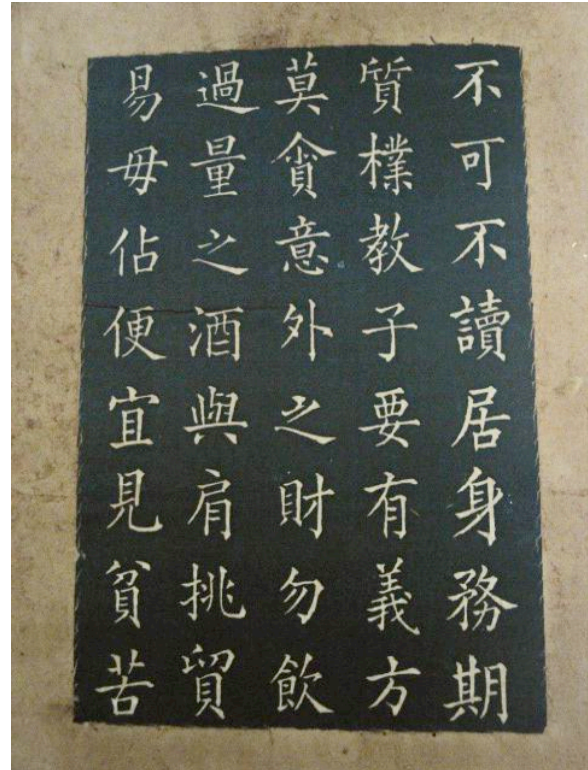 不可不讀居身務期
質樸教子要有義方
莫貪意外之財勿飲
過量之酒與肩挑貿
易毋佔便宜見貧苦